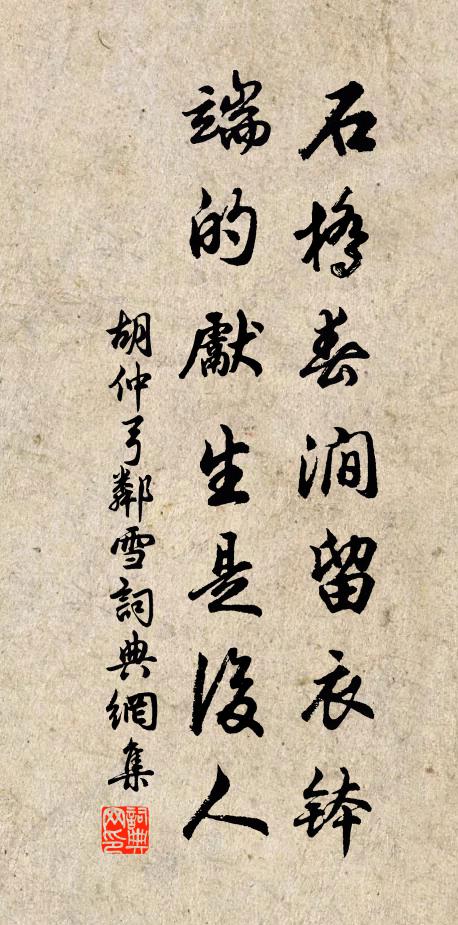 石橋春澗留衣鉢
端的獻生是後人
胡仲弓鄰雪詞典網集
詞典網印